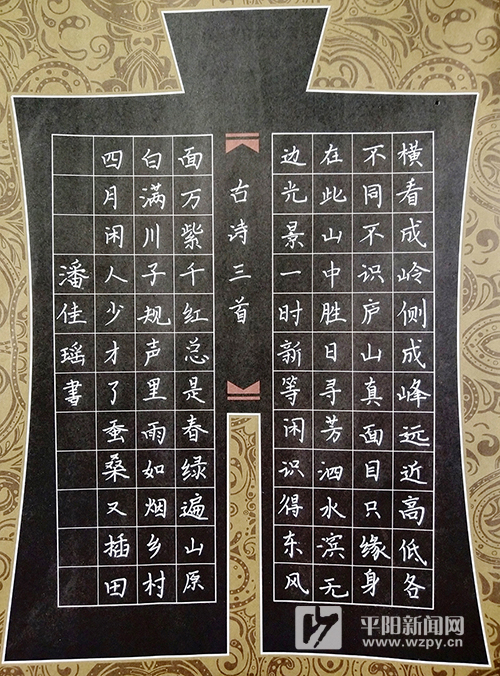 横看成岭侧成峰远近高低各
不同不识庐山真面目只缘身
在此山中胜日寻芳泗水滨无
边光景一时新等闲识得东风
古诗三首
面万紫千红总是春绿遍山原
白满川子规声里雨如烟乡村
四月闲人少才了蚕桑又插田
潘佳瑶書
平阳新闻网
www.wzpy.cn